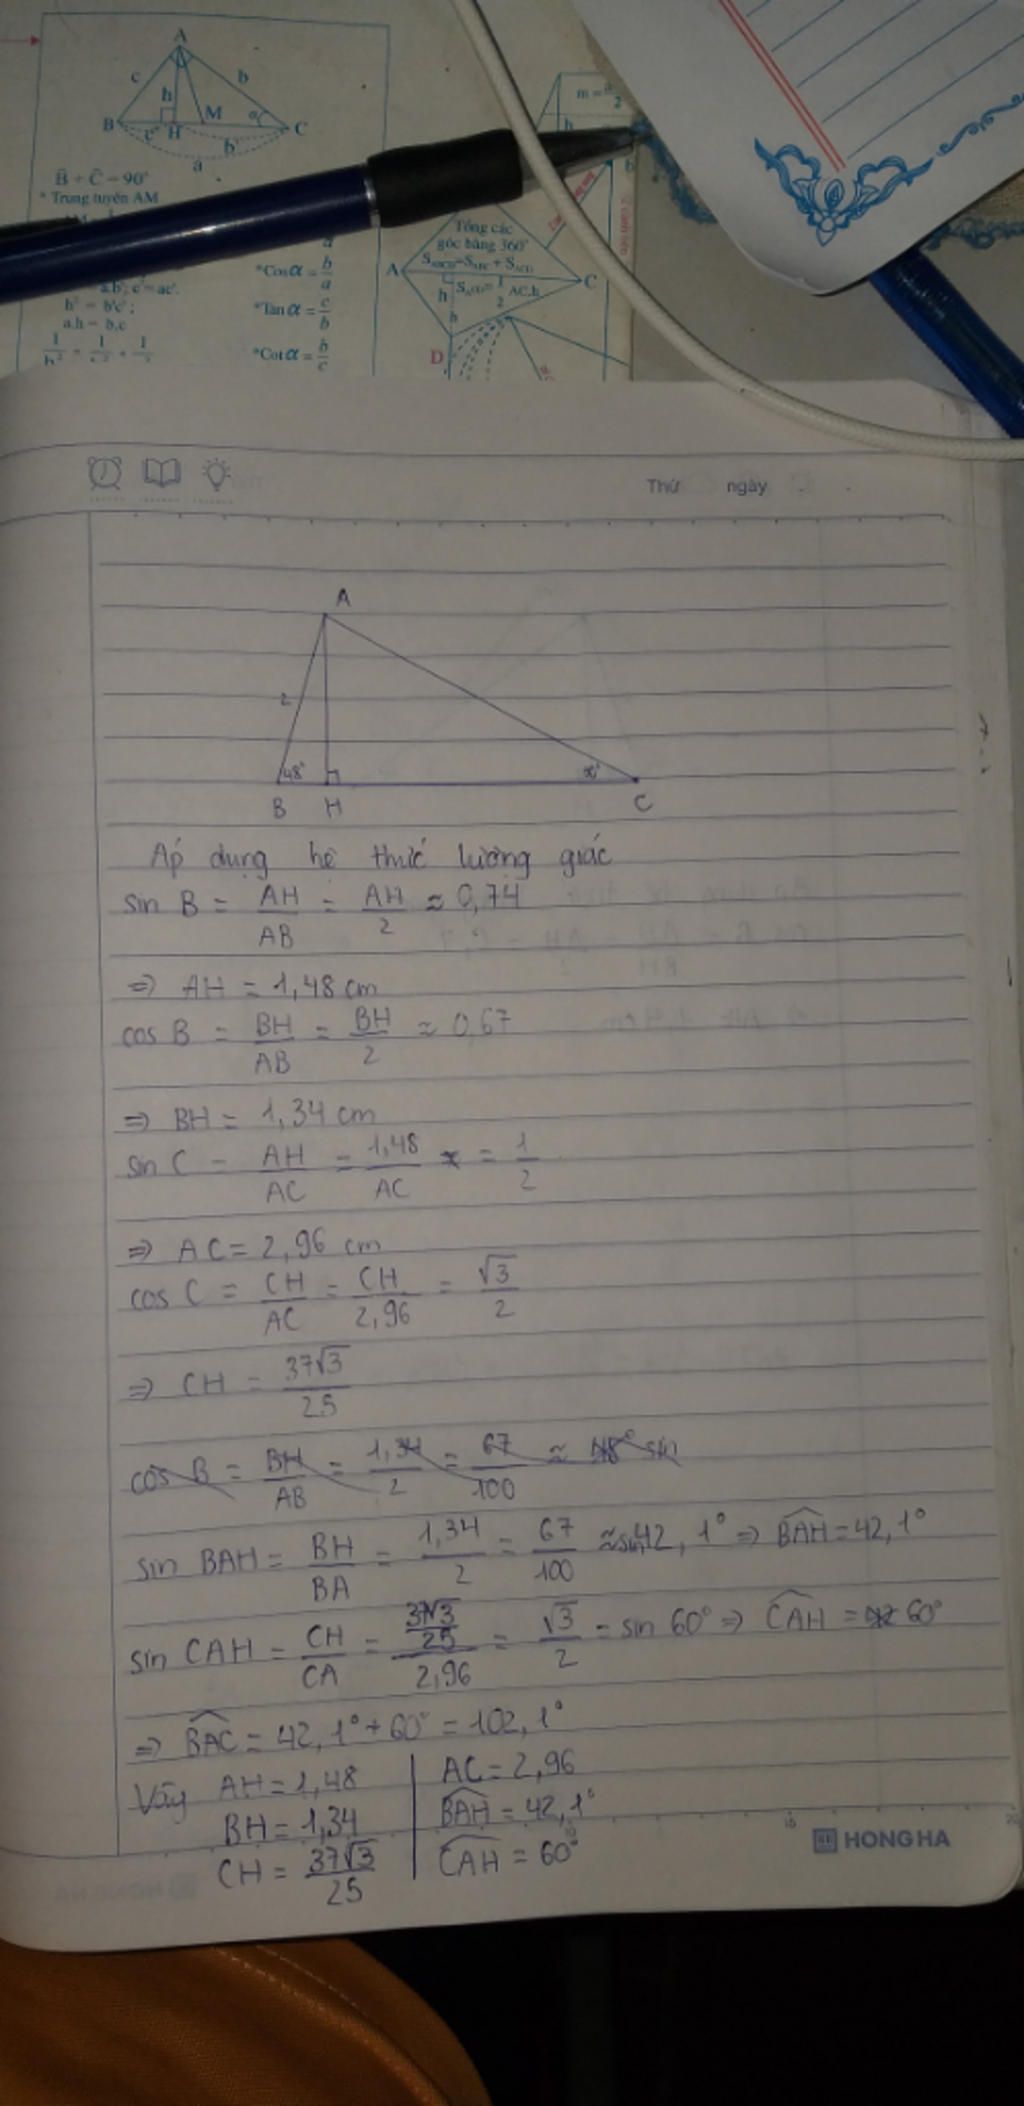 A
c
b
h
M
α
B
c'
H
b'
C
a
B̂ + Ĉ = 90°
* Trung tuyến AM
h² = b'c' ;
a.h = b.c
*Cosα = b/a
*Tanα = c/b
*Cotα = b/c
Tổng các
góc bằng 360°
A
C
h
D
Thứ ngày
A
2
48°
B H C
Áp dụng hệ thức lượng giác
sin B = AH/AB = AH/2 ≈ 0,74
⇒ AH = 1,48 cm
cos B = BH/AB = BH/2 ≈ 0,67
⇒ BH = 1,34 cm
sin C = AH/AC = 1,48/AC = 1/2
⇒ AC = 2,96 cm
cos C = CH/AC = CH/2,96 = √3/2
⇒ CH = 37√3/25
cos B = BH/AB = 1,34/2 = 67/100 ≈ 48° sin
sin BAH = BH/BA = 1,34/2 = 67/100 ≈ sin42,1° ⇒ BAH = 42,1°
sin CAH = CH/CA = (37√3/25)/2,96 = √3/2 = sin 60° ⇒ CAH = 60°
⇒ BAC = 42,1° + 60° = 102,1°
Vậy AH = 1,48 | AC = 2,96
BH = 1,34 | BAH = 42,1°
CH = 37√3/25 | CAH = 60°
HONG HA